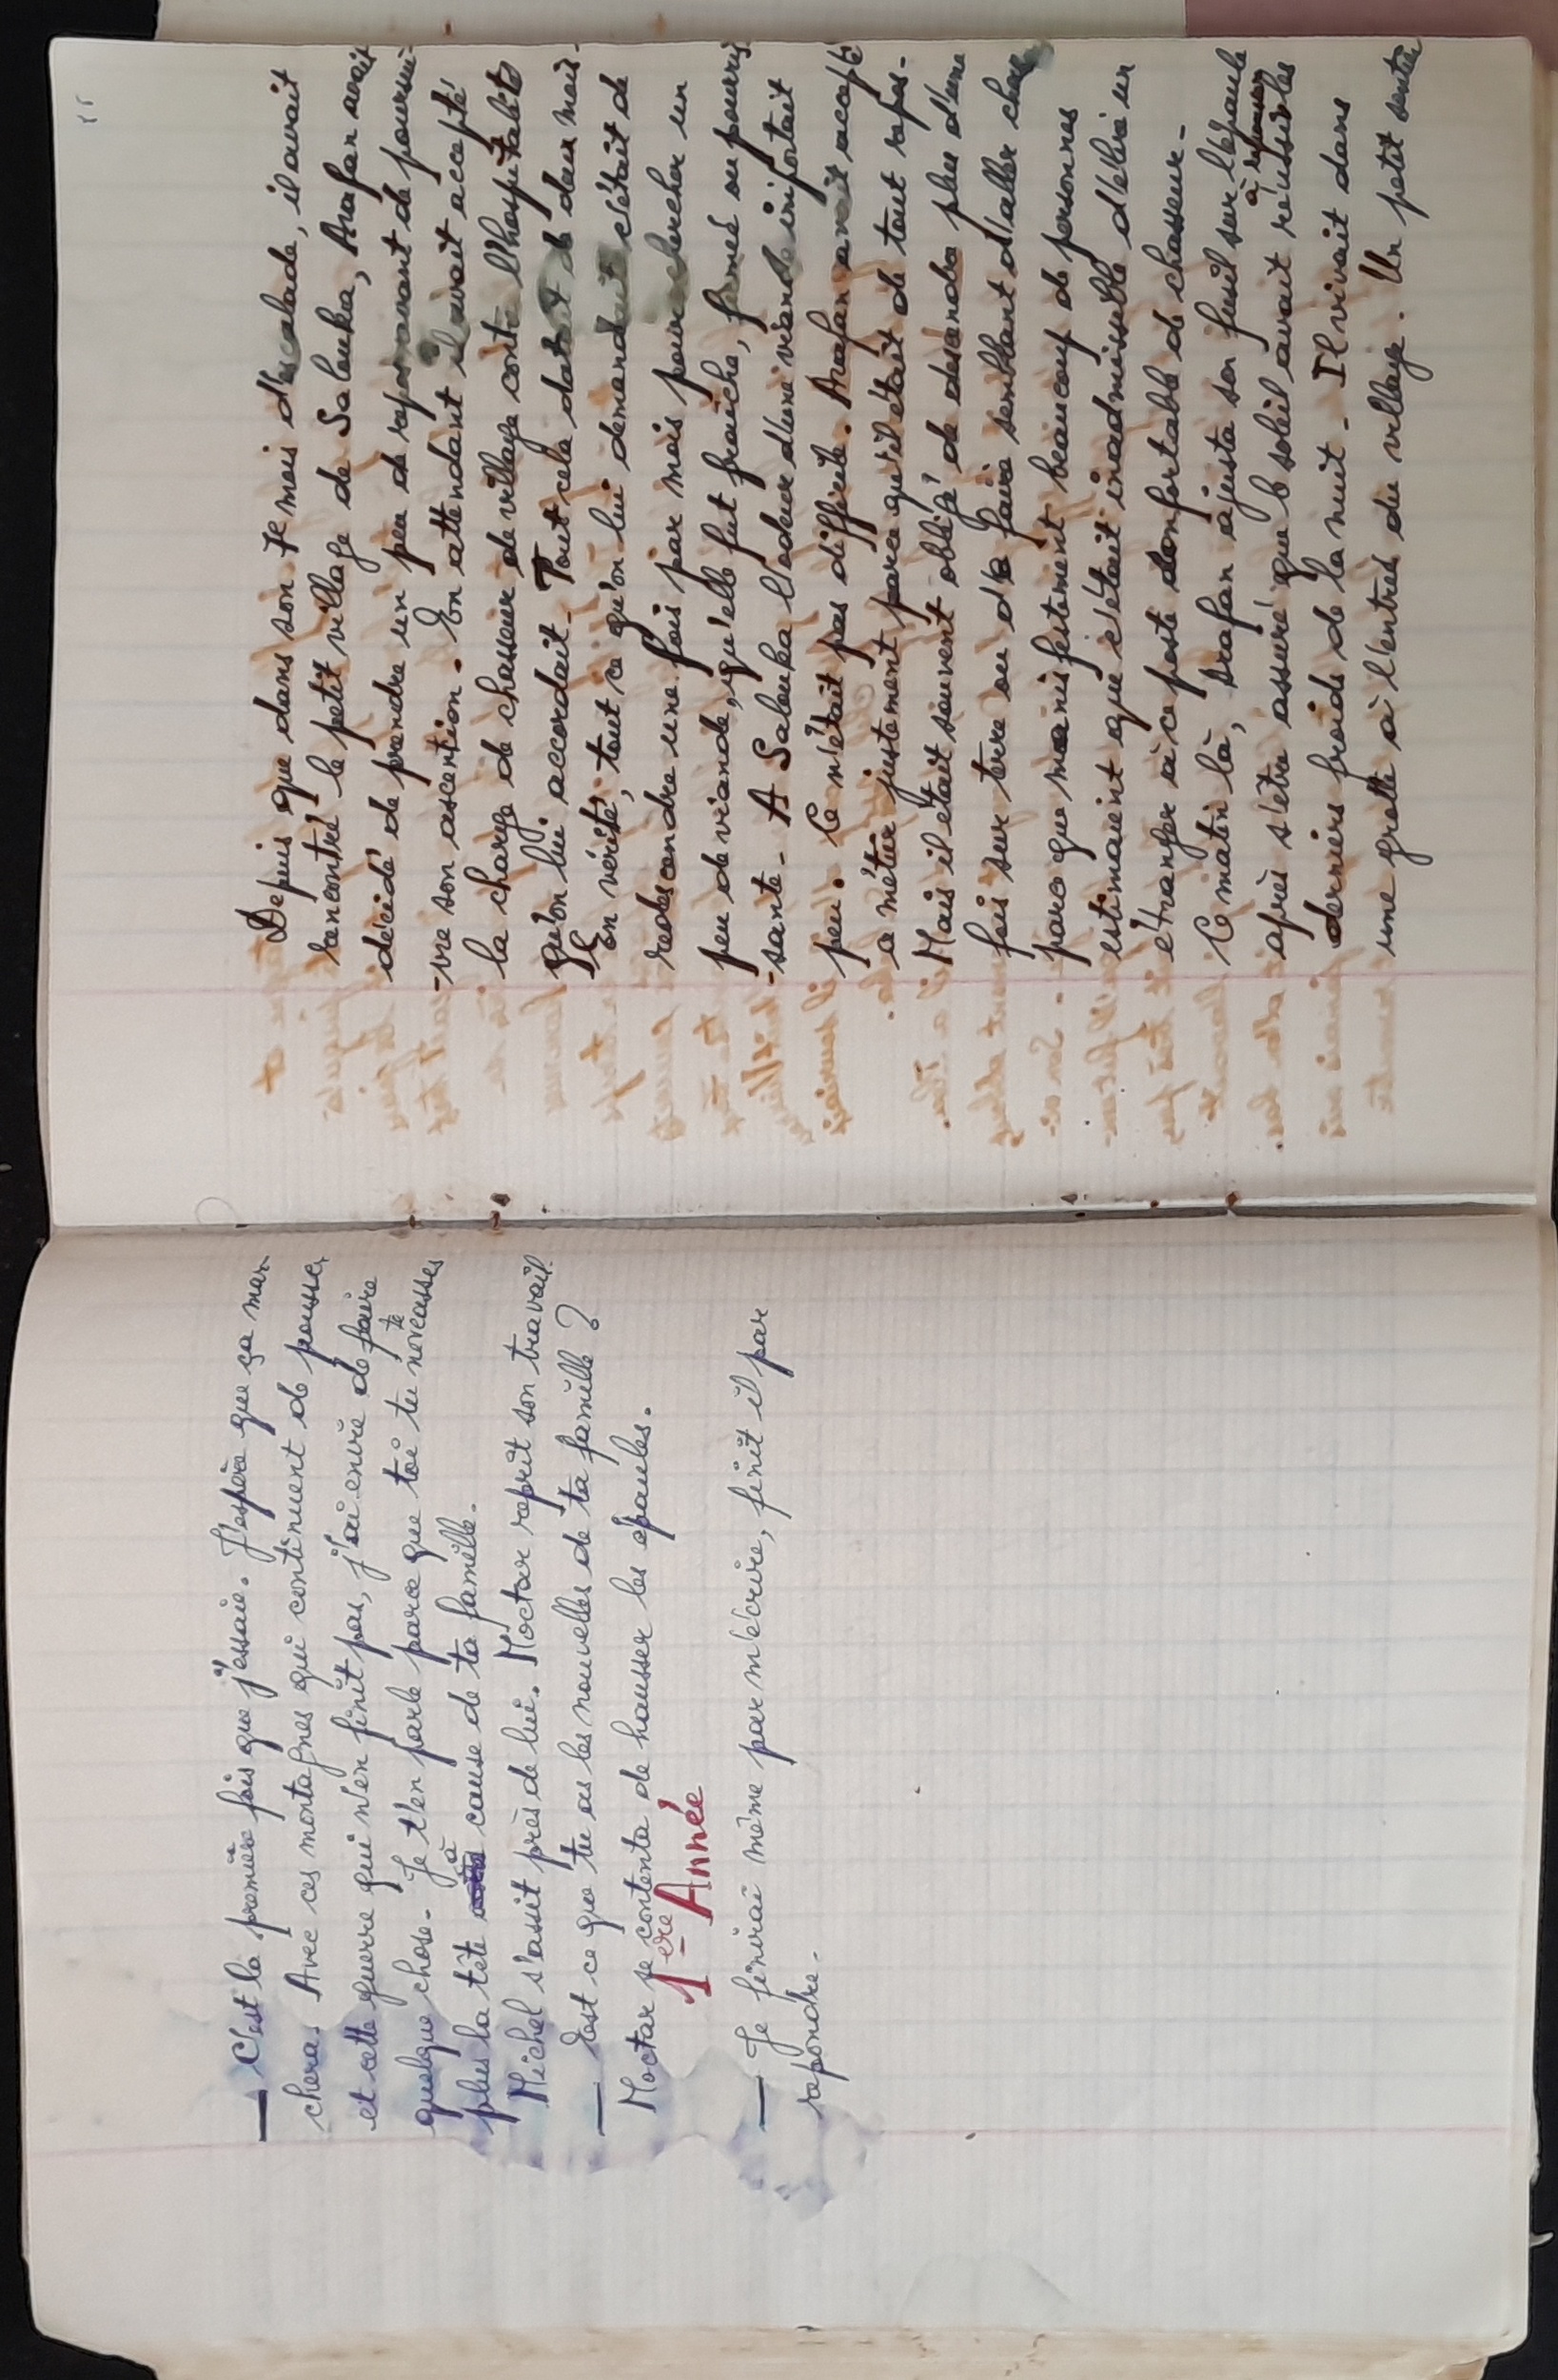 — C'est la première fois que j'essaie. J'espère que ça mar
chera. Avec ces montagnes qui continuent de pousser
et cette guerre qui n'en finit pas, j'ai envie de faire
quelque chose. Je t'en parle parce que toi tu te
plus la tête à cause de ta famille.
Michel s'assit près de lui. Moctar reprit son travail.
— Est ce que tu as les nouvelles de ta famille ?
Moctar se contenta de hausser les épaules.
1ère Année
— Je finirai même par m'écrire, finit il par
repondre.
Depuis que dans son 7e mois d'escalade, il avait
rencontré le petit village de Salouka, Arafan avait
décidé de prendre un peu de repos avant de poursui-
-vre son ascention. En attendant il avait accepté
la charge de chasseur de village contre l'hospitalité
qu'on lui accordait. Tout cela datait de deux mois.
En vérité, tout ce qu'on lui demandait c'était de
redescendre une fois par mois pour chercher un
peu de viande, qu'elle fut fraîche, fumée ou pourris
-sante. A Salouka l'odeur d'une viande importait
peu. Ce n'était pas difficile. Arafan avait accepté
ce métier justement parce qu'il était de tout repos.
Mais il était souvent obligé de descendre plus d'une
fois sur terre ou de faire semblant d'aller chas
parce que manifestement beaucoup de personnes
estimaient que c'était inadmissible d'élire un
étranger à ce poste confortable de chasseur.
Ce matin là, Arafan ajusta son fusil sur l'épaule
après s'être assuré que le soleil avait réussi à les
derniers froids de la nuit. Il vivait dans
une grotte à l'entrée du village. Un petit sentier